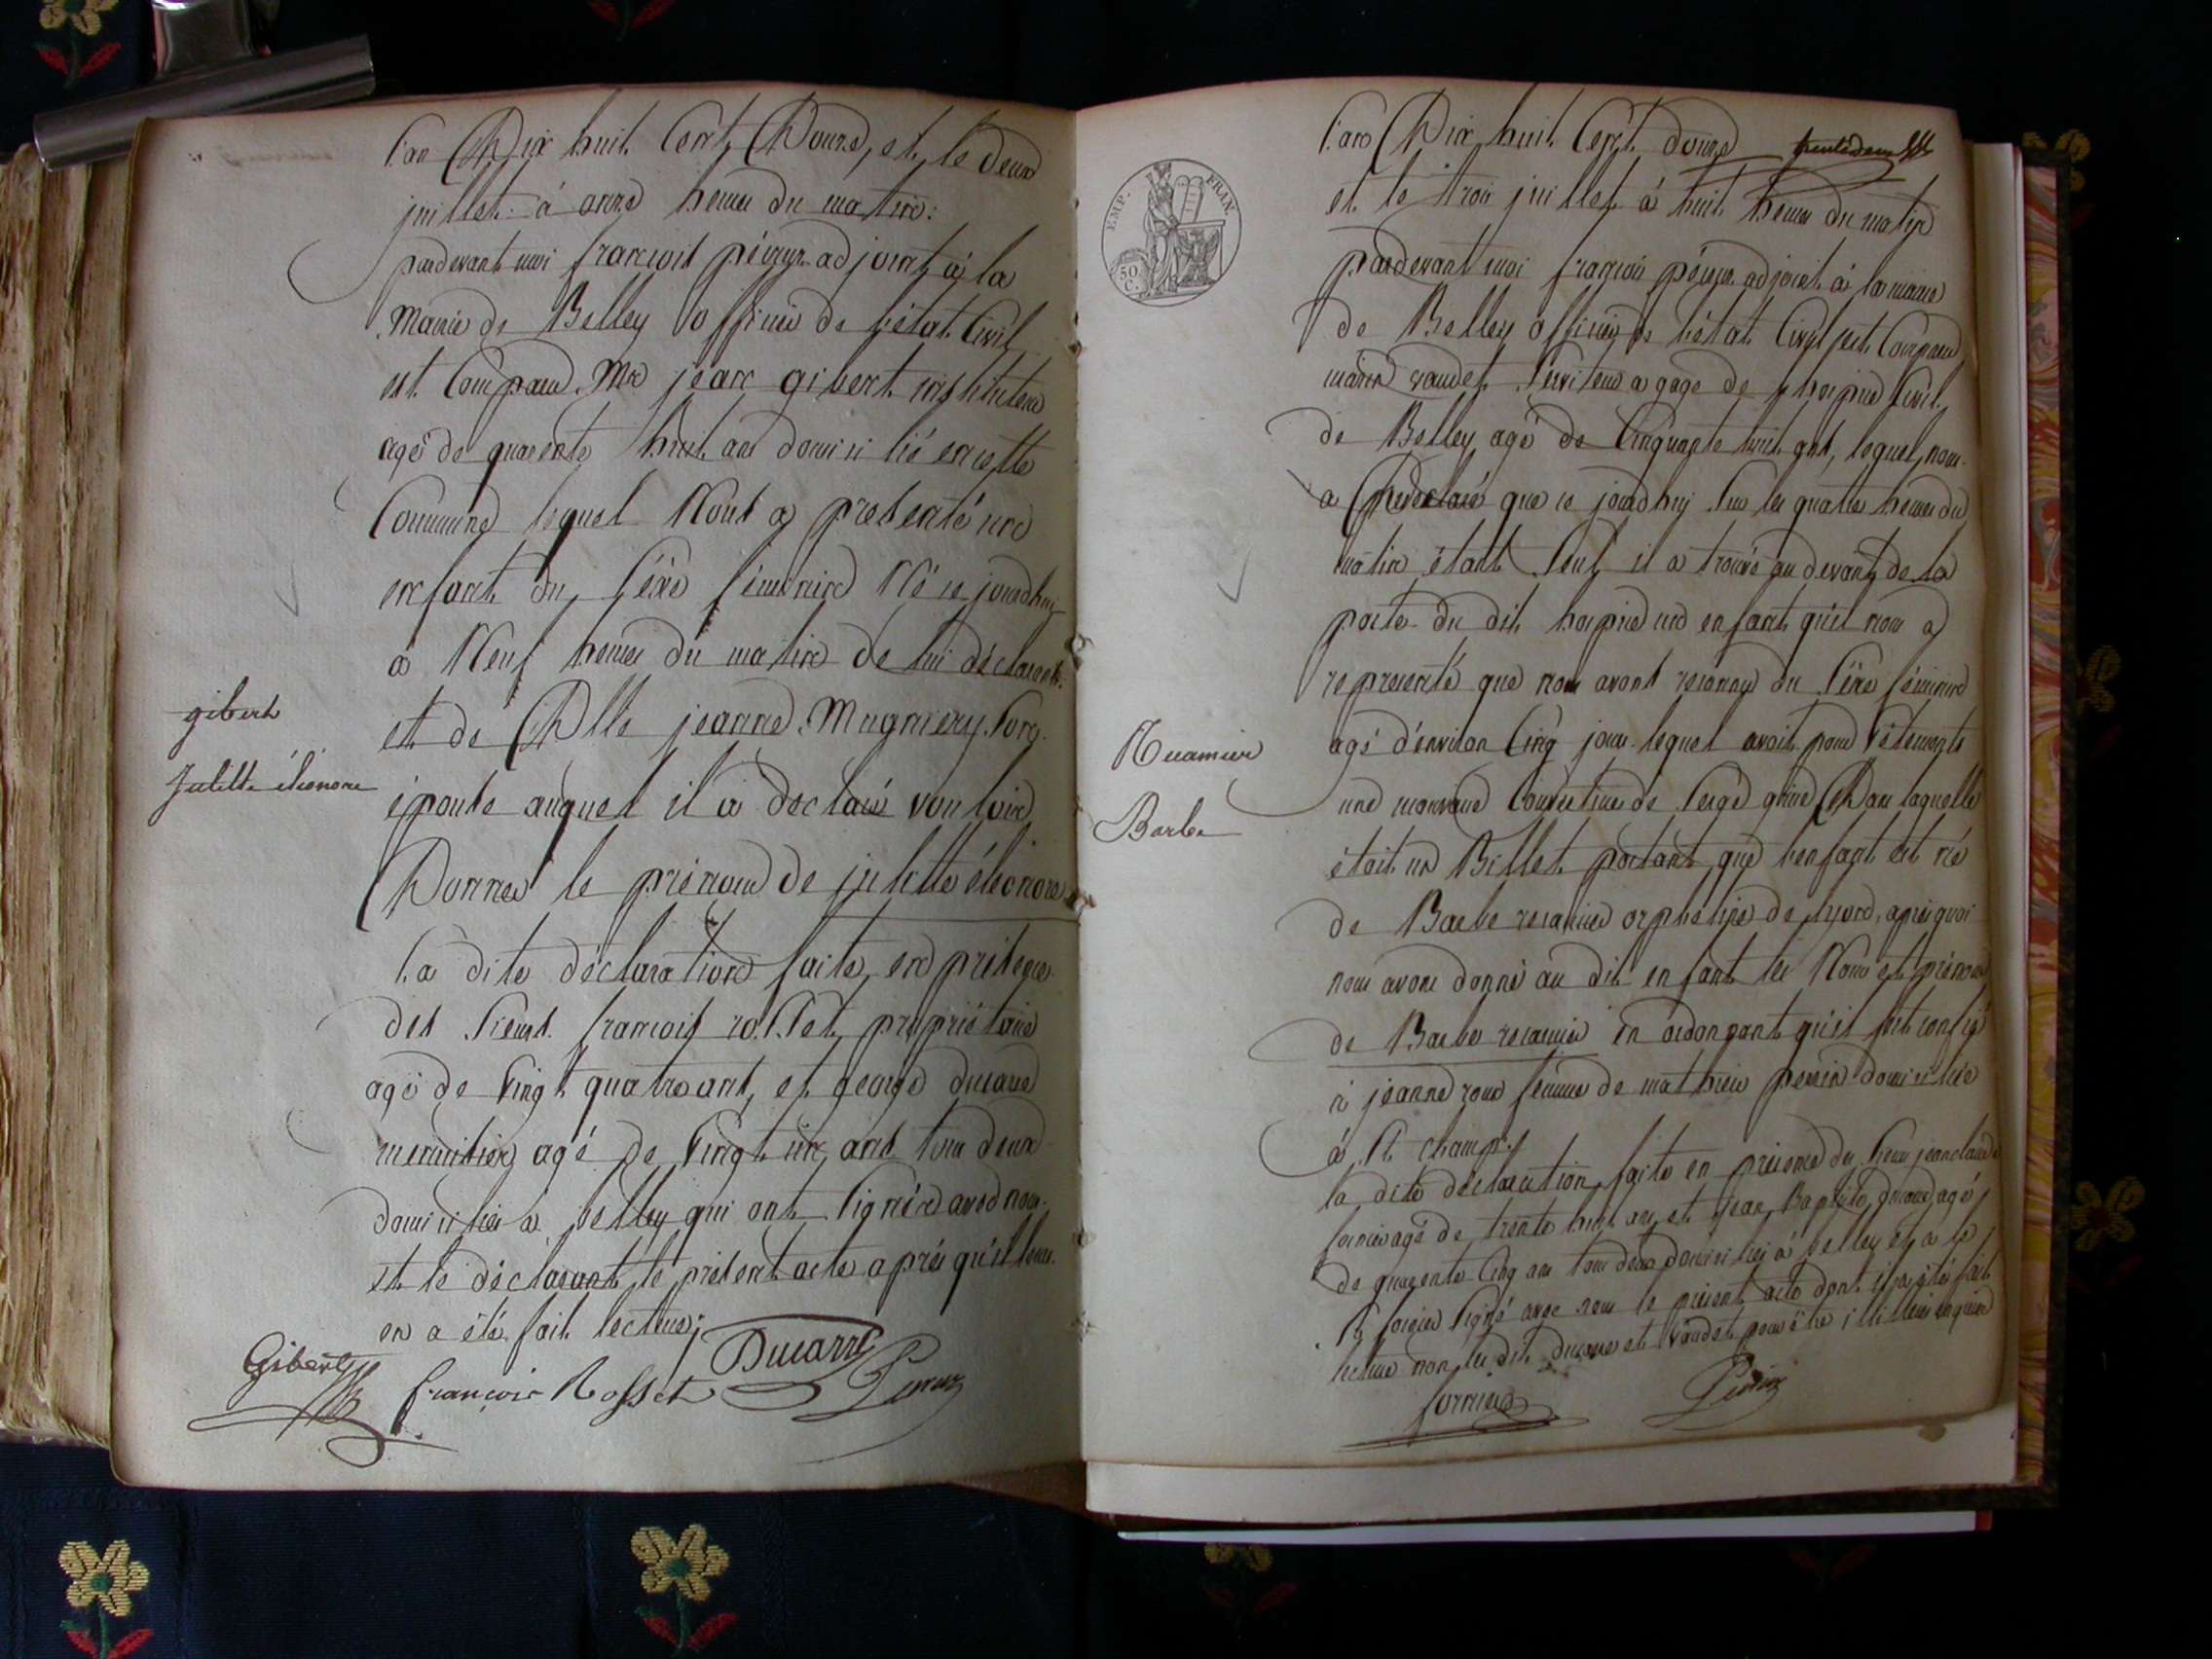 l'an Dix huit Cent Douze, et le deux
juillet à onze heures du matin:
pardevant moi françois péruz adjoint à la
Mairie de Belley officier de l'état Civil
est Comparu Mr jean gibert instituteur
agé de quarente huit ans domicilié en cette
Commune lequel Nous a presenté un
enfant du séxe féminin Né ce jourdhuy
à Neuf heures du matin de lui déclarant
et de Dlle jeanne Mugniery son
épouse auquel il a declaré vouloir
Donner le prénom de julitte éléonore
la dite déclaration faite en présence
des sieurs françois rosset propriétaire
agé de vingt quatre ans, et george ducarre
menuisier agé de vingt un ans tous deux
domiciliés à belley qui ont signé avec nous
et le déclarant le présent acte après qu'il leur
en a été fait lecture;
Gibert
françois Rosset
Ducarre
gibert
Julitte éléonore
l'an Dix huit Cent douze
trente deux
et le trois juillet à huit heures du matin
pardevant moi françois péruz adjoint à la mairie
de Belley officier de l'état Civil est Comparu
vaudet serviteur a gage de l'hospice Civil
de Belley agé de Cinquante huit ans, lequel nous
a déclaré que ce jourdhuy sur les quatre heures du
matin étant seul il a trouvé au devant de la
porte du dit hospice un enfant qu'il nous a
representé que nous avons reconnu du séxe féminin
agé d'environ Cinq jours lequel avoit pour vétements
une mauvaise Couverture de serge grise Dans laquelle
était un Billet portant que l'enfant est né
de Barbe recamier orpheline de lyon, après quoi
nous avons donné au dit enfant les Nom et prénom
de Barbe recamier en ordonnant qu'il soit confié
à jeanne roux femme de mathieu perrin domiciliée
à St champ.
la dite déclaration faite en présence des sieurs jean claude
agé de trente huit ans et jean Baptiste ducarre agé
de quarente Cinq ans tous deux domiciliés à belley et a le
Sr signé avec nous le présent acte dont il a été fait
lecture non les dits ducarre et vaudet pour être illitérés enquis
Recamier
Barbe
EMP. FRAN.
50
C.